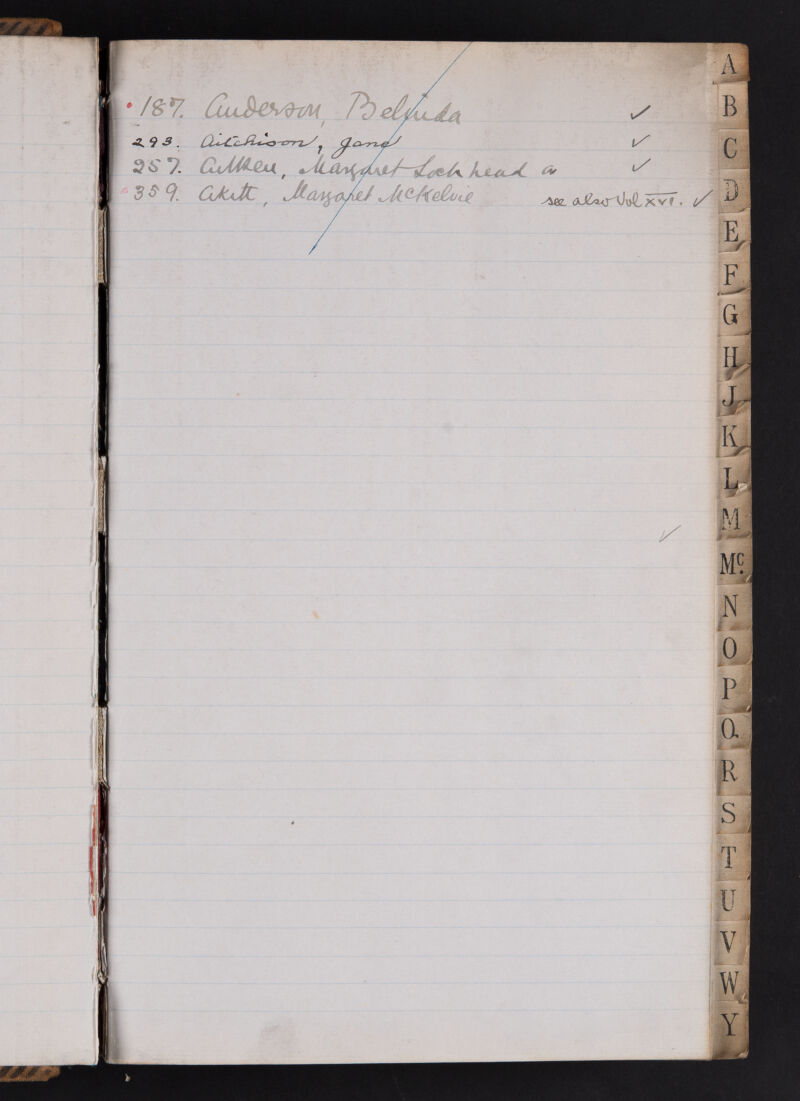 187. Anderson, Belinda ✓
293. Aitchison, Jane ✓
257. Aitken, Margaret Lochhead or ✓
359. Akitt, Margaret McKelvie see also Vol XVI. ✓
✓
A
B
C
D
E
F
G
H
J
K
L
M
Mc.
N
O
P
Q.
R
S
T
U
V
W
Y